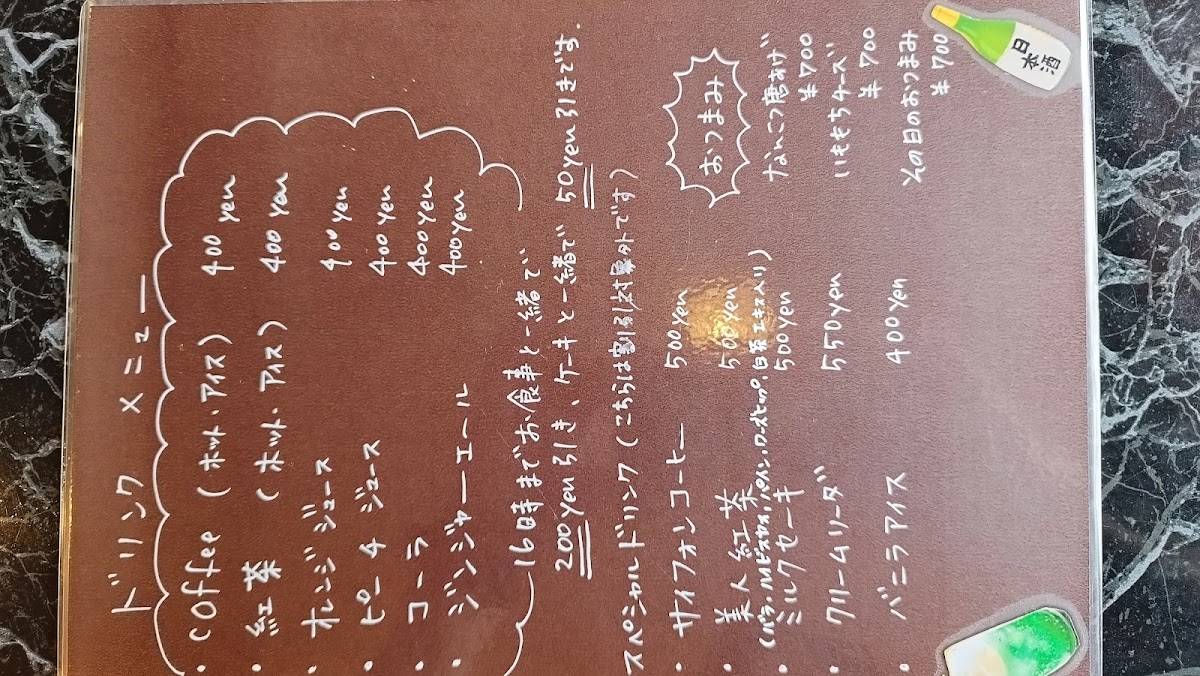 ドリンク メニュー
・coffee (ホット・アイス) 400 yen
・紅茶 (ホット・アイス) 400 yen
・オレンジジュース 400 yen
・ピーチ ジュース 400 yen
・コーラ 400 yen
・ジンジャーエール 400 yen
16時までお食事と一緒で
200yen引き、ケーキと一緒で 50yen引きです。
スペシャルドリンク (こちらは割引対象外です)
・サイフォンコーヒー 500 yen
・美人紅茶 500 yen
(バラ、ハイビスカス、パイン、ローズヒップ、白茶エキス入り)
・ミルクセーキ 500 yen
・クリームソーダ 550 yen
・バニラアイス 400 yen
おつまみ
なんこつ唐あげ
¥700
いももちチーズ
¥700
その日のおつまみ
¥700
日本酒